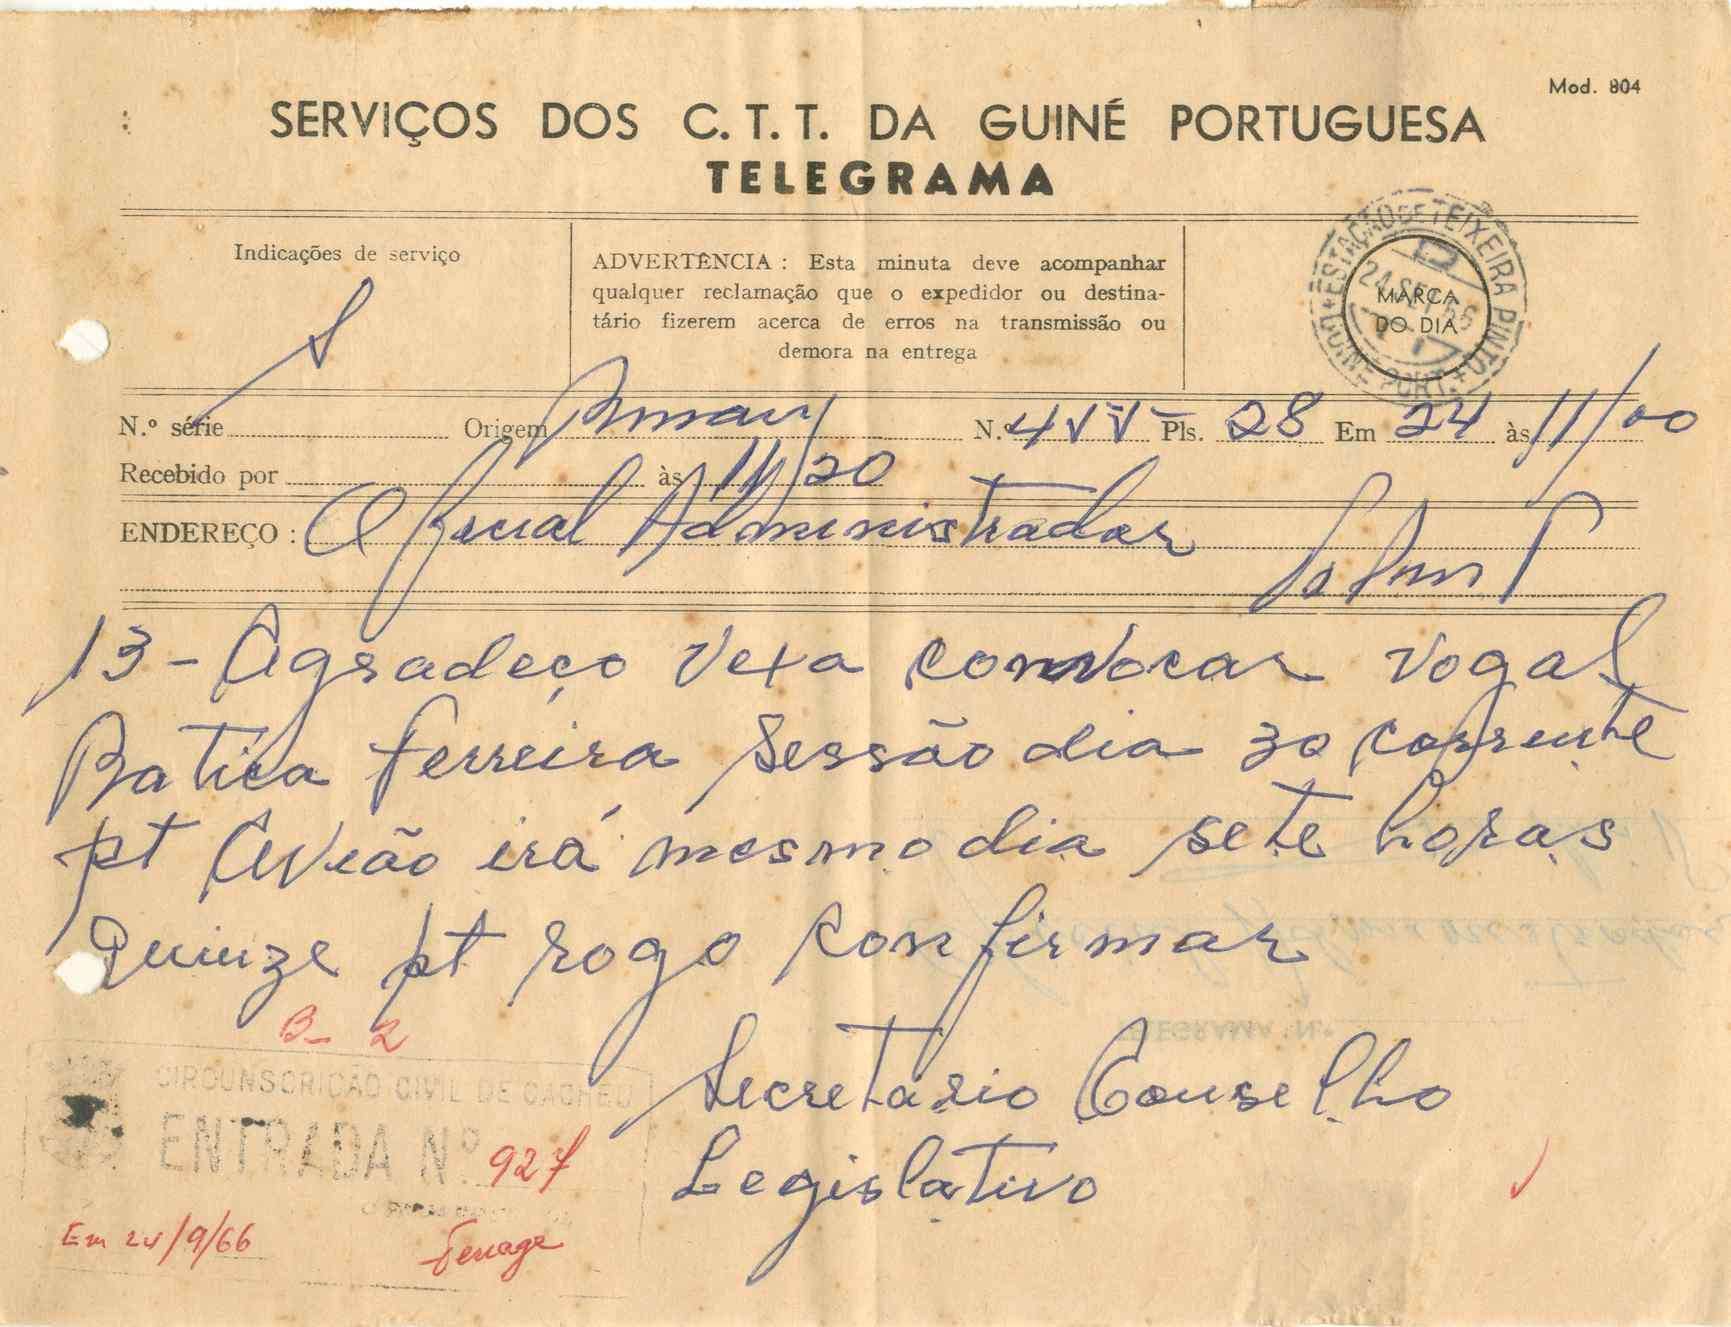 Mod. 804
SERVIÇOS DOS C. T. T. DA GUINÉ PORTUGUESA
TELEGRAMA
Indicações de serviço
ADVERTÊNCIA : Esta minuta deve acompanhar
qualquer reclamação que o expedidor ou destina-
tário fizerem acerca de erros na transmissão ou
demora na entrega
ESTAÇÃO DE TEIXEIRA PINTO
GUINÉ PORT.
24 SET 66
MARCA
DO DIA
N.º série Origem Bissau N.º Pls. 28 Em 24 às 11/00
Recebido por às 11/20
ENDEREÇO : Oficial Administrador
13 - Agradeço Vexa convocar vogal
Batica Ferreira Sessão dia 30 corrente
pt Avião irá mesmo dia sete horas
quinze pt rogo confirmar
Secretario Conselho
Legislativo
B- 2
CIRCUNSCRIÇÃO CIVIL DE CACHEU
ENTRADA N.º 927
Em 24/9/66
TELEGRAMA N.º